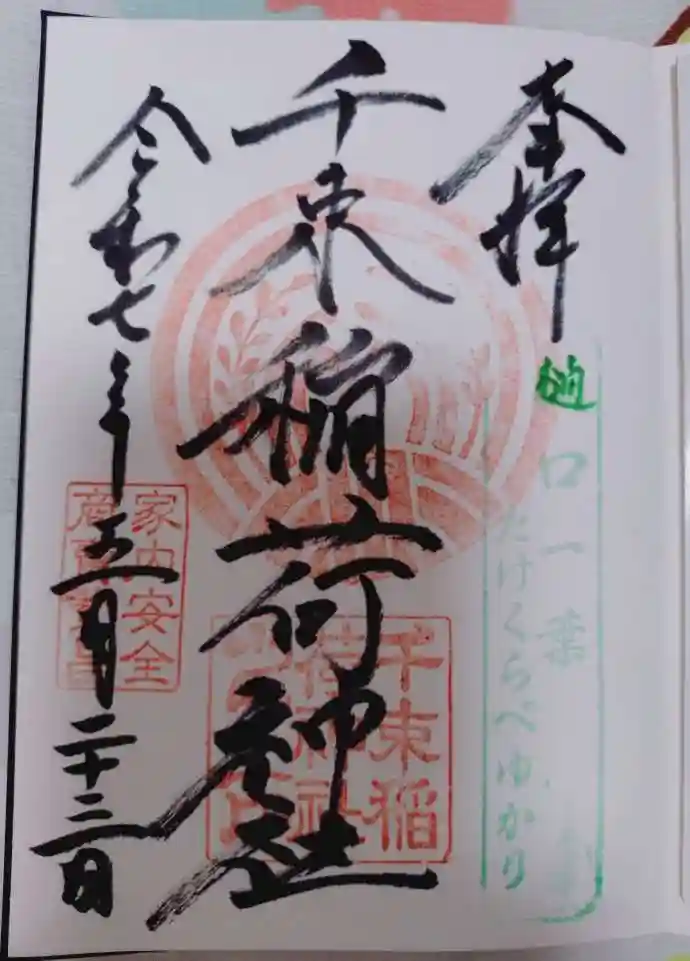 奉拝
樋口一葉
たけくらべゆかり
千束稲荷神社
千束稲
荷神社
令和七年五月二十三日
家内安全
商売繁昌